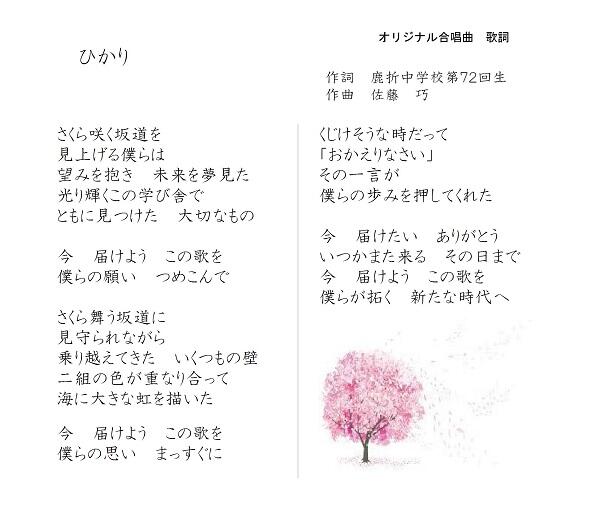 オリジナル合唱曲　歌詞
ひかり
作詞　鹿折中学校第72回生
作曲　佐藤　巧
さくら咲く坂道を
見上げる僕らは
望みを抱き　未来を夢見た
光り輝くこの学び舎で
ともに見つけた　大切なもの
今　届けよう　この歌を
僕らの願い　つめこんで
さくら舞う坂道に
見守られながら
乗り越えてきた　いくつもの壁
二組の色が重なり合って
海に大きな虹を描いた
今　届けよう　この歌を
僕らの思い　まっすぐに
くじけそうな時だって
「おかえりなさい」
その一言が
僕らの歩みを押してくれた
今　届けたい　ありがとう
いつかまた来る　その日まで
今　届けよう　この歌を
僕らが拓く　新たな時代へ